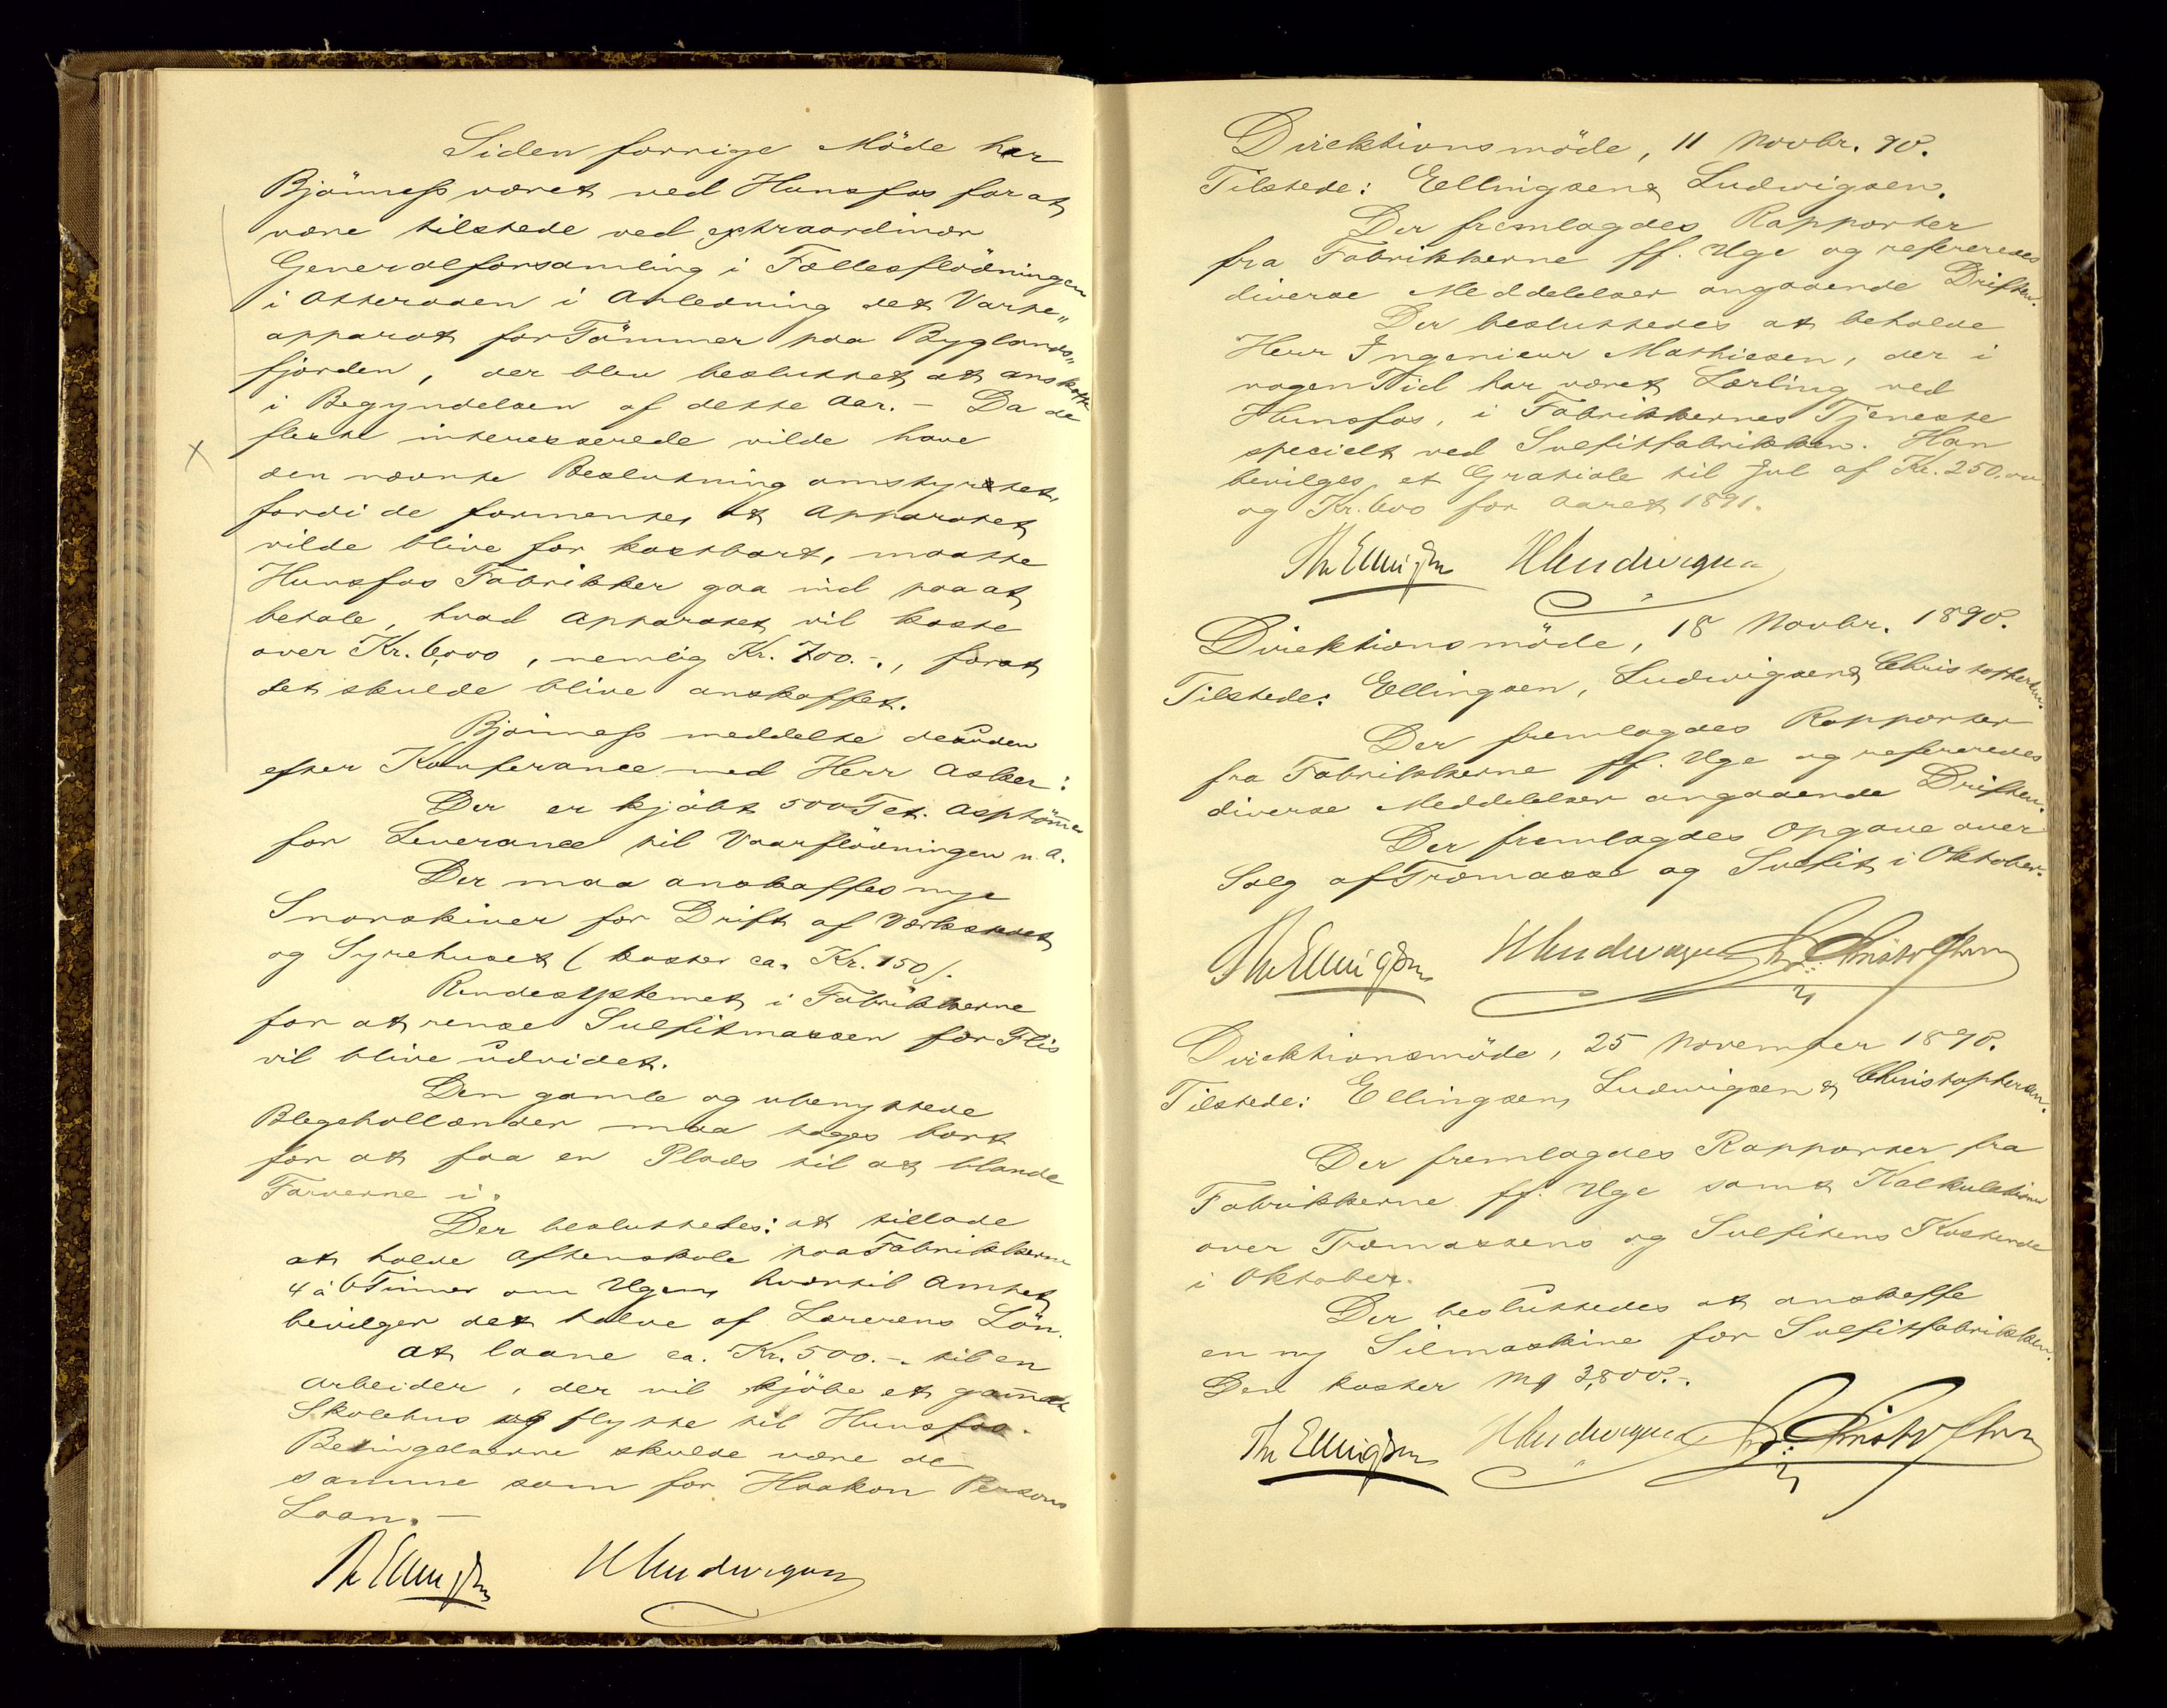 Siden forrige Möde har
Bjönness været ved Hunsfos forat
være tilstede ved extraordinær
Generalforsamling i Fællesflödningen
i Otteraaen i Anledning det Varpe„
apparat for Tömmer paa Byglands„
fjorden, der blev besluttet at anskaffe
i Begyndelsen af dette Aar. – Da de
fleste interesserede vilde have
den nævnte Beslutning omstyrtet,
fordi de formente, at Apparatet
vilde blive for kostbart, maatte
Hunsfos Fabrikker gaa ind paa at
betale, hvad Apparatet vil koste
over Kr. 6,000, nemlig Kr. 700.-, forat
det skulde blive anskaffet.
Bjönness meddelte desuden
efter Konferance med Herr Asker:
Der er kjöbt 500 Tet. Asptömmer
for Leverance til Vaarflödningen n. A.
Der maa anskaffes nye
Snorskiver for Drift af Værkstedet
og Syrehuset (koster ca. Kr. 150).
Rendesystemet i Fabrikkerne
for at rense Sulfitmassen for Flis
vil blive udvidet.
Den gamle og ubenyttede
Blegehollænder maa tages bort
for at faa en Plads til at blande
Farverne i.
Der besluttedes: at tillade
at holde Aftenskole paa Fabrikkerne
4 à 6 Timer om Ugen, hvortil Amtet
bevilger det halve af Lærerens Lön.
at laane ca. Kr. 500.-. til en
Arbeider, der vil kjöbe et gammelt
Skolehus og flytte til Hunsfos.
Betingelserne skulde være de
samme som for Haakon Persons
Laan. –
Th Ellingsen HLudwigsen
Direktionsmöde, 11 Novbr. 90.
Tilstede: Ellingsen & Ludwigsen.
Der fremlagdes Rapporter
fra Fabrikkerne ff. Uge og refereredes
diverse Meddelelser angaaende Driften.
Der besluttedes at beholde
Herr Ingeniör Mathiesen, der i
nogen Tid har været Lærling ved
Hunsfos, i Fabrikkernes Tjeneste
specielt ved Sulfitfabrikken. Han
bevilges et Gratiale til Jul af Kr. 250,00
og Kr. 600 for Aaret 1891.
Th Ellingsen HLudwigsen
Direktionsmöde, 18 Novbr. 1890.
Tilstede: Ellingsen, Ludwigsen & Christophersen.
Der fremlagdes Rapporter
fra Fabrikkerne ff. Uge og refereredes
diverse Meddelelser angaaende Driften.
Der fremlagdes Opgave over
Salg af Træmasse og Sulfit i Oktober.
Th Ellingsen HLudwigsen Chr. Christophersen
Direktionsmöde, 25 November 1890.
Tilstede: Ellingsen, Ludwigsen & Christophersen.
Der fremlagdes Rapporter fra
Fabrikkerne ff. Uge samt Kalkulationer
over Træmassens og Sulfitens Kostende
i Oktober.
Der besluttedes at anskaffe
en ny Silmaskine for Sulfitfabrikken.
Den koster Mq 3,800.-.
Th Ellingsen HLudwigsen Chr. Christophersen